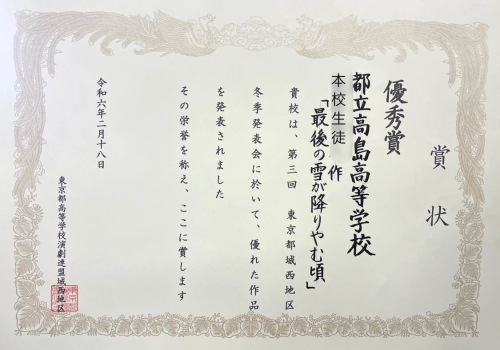 賞状
優秀賞
都立高島高等学校
本校生徒 作
「最後の雪が降りやむ頃」
貴校は、第三回 東京都城西地区
冬季発表会に於いて、優れた作品
を発表されました
その栄誉を称え、ここに賞します
令和六年二月十八日
東京都高等学校演劇連盟城西地区